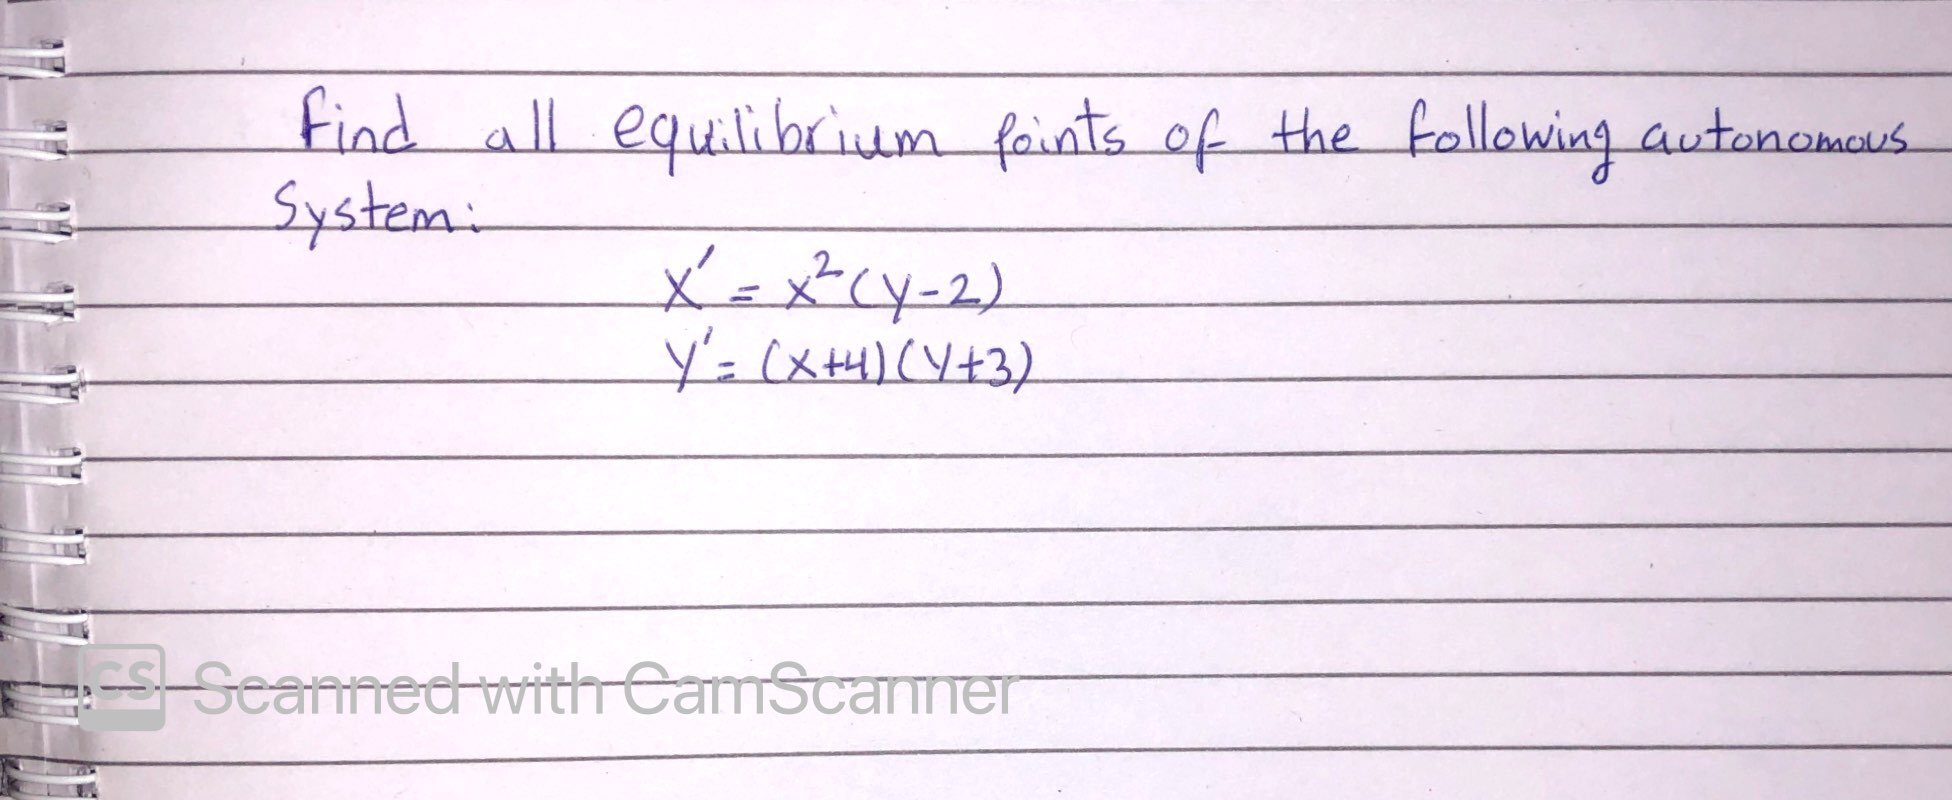 Find all equilibrium points of the following autonomous
System:
x' = x²(y-2)
y' = (x+4)(y+3)
CS Scanned with CamScanner